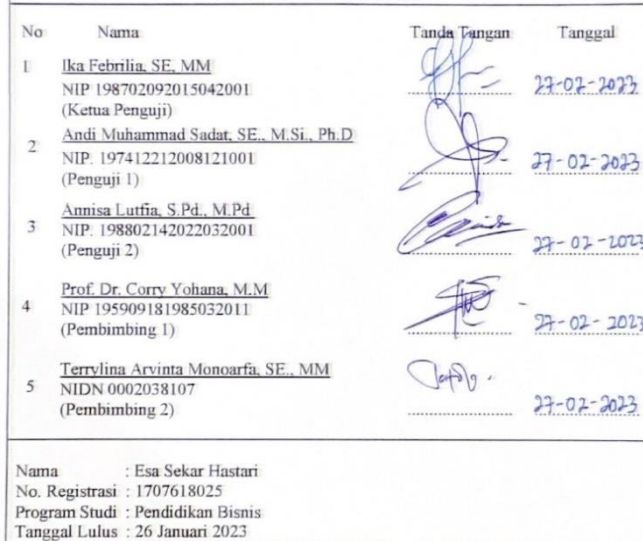 No Nama Tanda Tangan Tanggal
1 Ika Febrilia, SE, MM
NIP 198702092015042001 27-02-2023
(Ketua Penguji)
2 Andi Muhammad Sadat, SE., M.Si., Ph.D
NIP. 197412212008121001 27-02-2023
(Penguji 1)
3 Annisa Lutfia, S.Pd., M.Pd
NIP. 198802142022032001
(Penguji 2) 27-02-2023
4 Prof. Dr. Corry Yohana, M.M
NIP 195909181985032011
(Pembimbing 1) 27-02-2023
5 Terrylina Arvinta Monoarfa, SE., MM
NIDN 0002038107
(Pembimbing 2) 27-02-2023
Nama : Esa Sekar Hastari
No. Registrasi : 1707618025
Program Studi : Pendidikan Bisnis
Tanggal Lulus : 26 Januari 2023